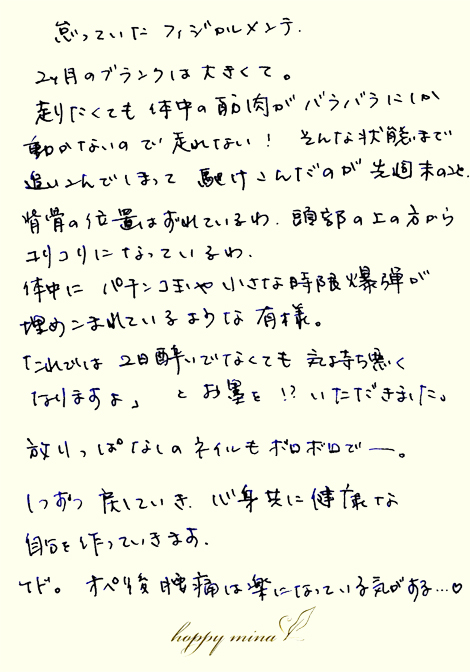 怠っていた フィジカルメンテ.
2ヶ月のブランクは大きくて。
走りたくても 体中の筋肉が バラバラにしか
動かないので走れない! そんな状態まで
追いこんでしまって 駆けこんだのが 先週末のこと.
背骨の位置はずれているわ. 頭部の上の方から
コリコリになっているわ.
体中に パチンコ玉や小さな時限爆弾が
埋めこまれているような有様。
「これでは 2日酔いでなくても 気持ち悪く
なりますよ」 と お墨を!? いただきました。
放りっぱなしのネイルも ボロボロでー。
1つずつ 戻していき. 心身共に健康な
自分を作っていきます.
ケド。 オペ後腰痛は楽になっている気がある…♡
happy mina